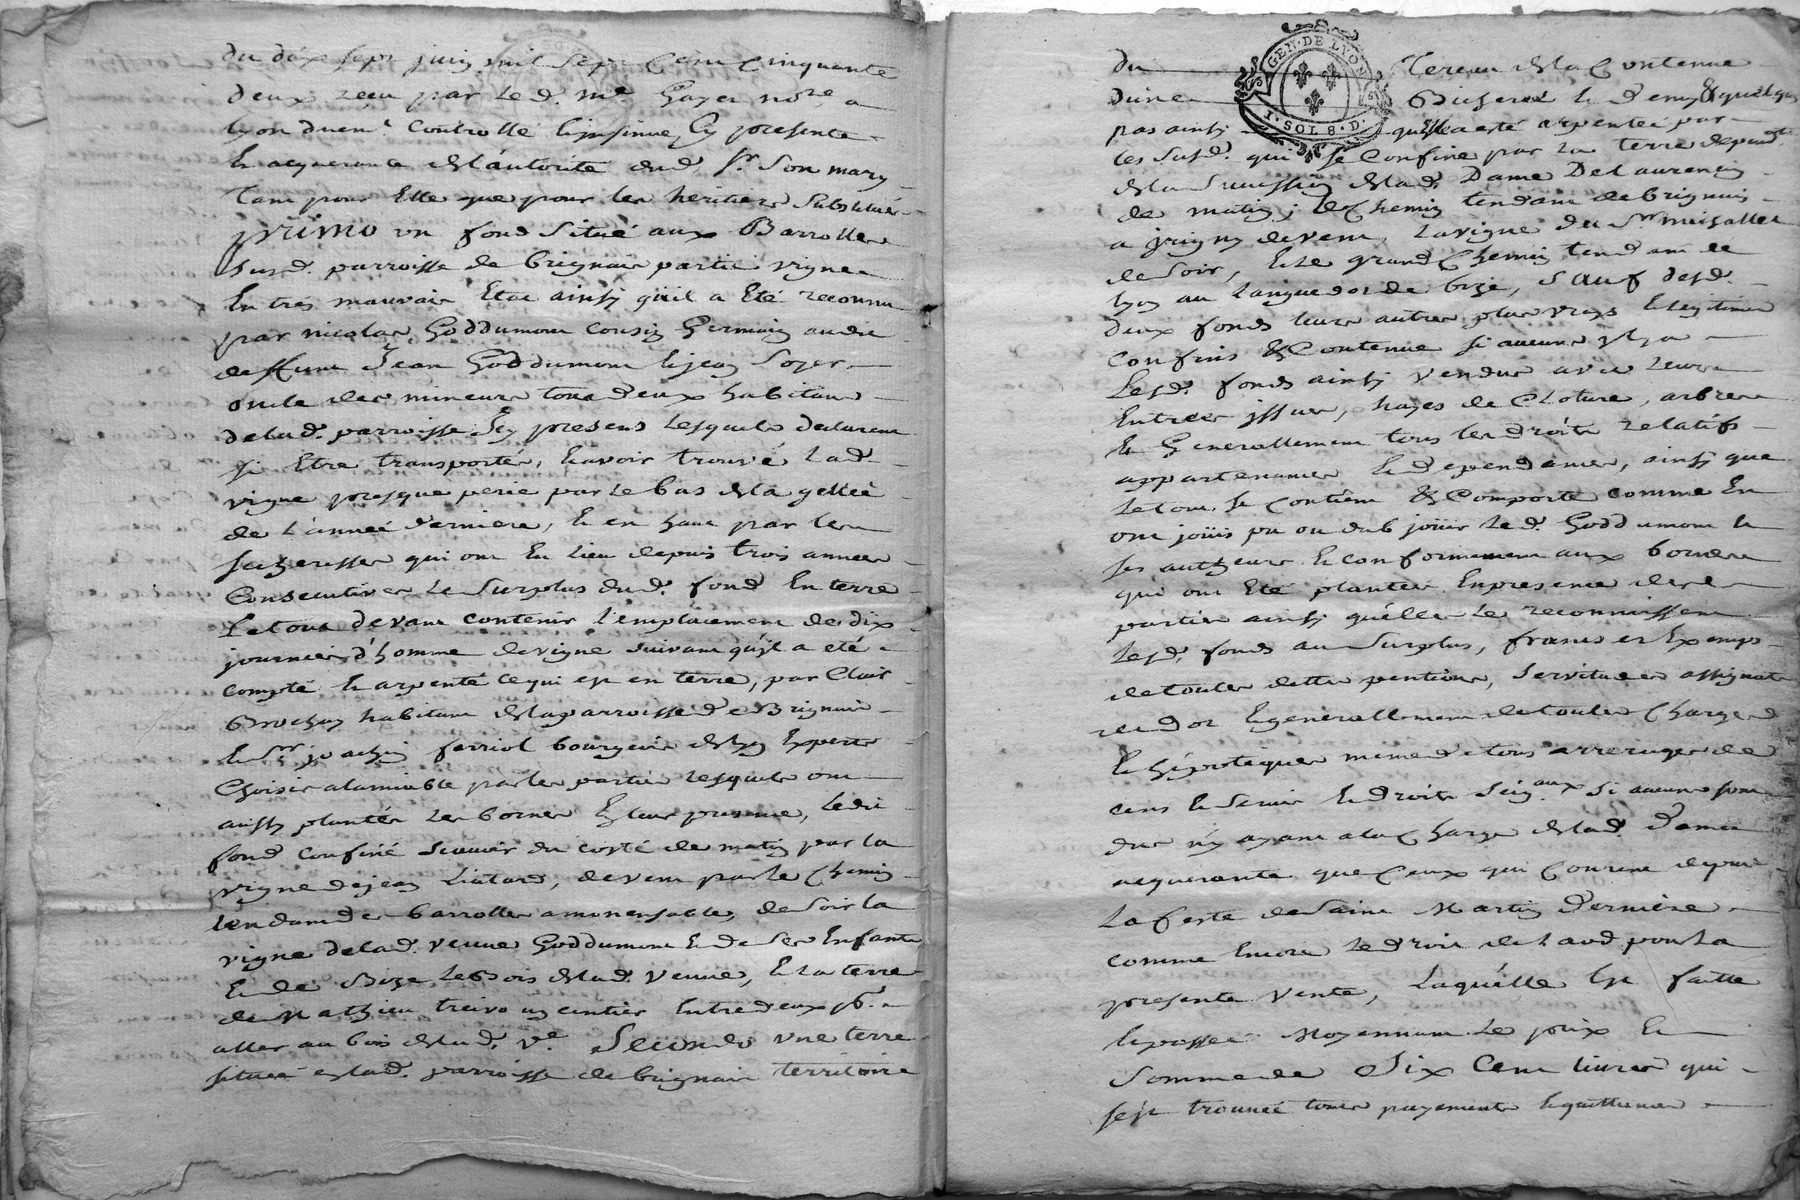 du dix sept juin mil sept cent cinquante
deux reçu par led. me Gayet nore a
lyon duemt controllé & insinué Cy presente
& acquerante de l'autorité dud. sr. son mary
tant pour Elle que pour les heritiers substitués
primo un fond situé aux Barrolles
susd. parroisse de brignais partie vigne
En tres mauvais Etat ainsy quil a Eté reconnu
par nicolas Goddumont cousin Germain audit
deffunt Jean Goddumont & jean
oncle des mineurs tous deux habitans
de lad. parroisse Icy presens lesquels declarent
si Etre transportés, & avoir trouvé lad.
vigne presque perie par le bas de la gellée
de l'année derniere, & en haut par les
secheresses qui ont Eu lieu depuis trois années
Consecutives le surplus dud. fond En terre
le tout devant contenir l'emplacement de dix
journées d'homme de vigne suivant qu'il a eté
compté & arpenté ce qui est en terre, par Clair
Brochay habitant de la parroisse de Brignais
& sr joachim ferriol bourgeois de lyon Experts
Choisis alamiable par les parties lesquels ont
aussy planté les bornes En leur presence, ledit
fond confiné scavoir du costé de matin par la
vigne de jean Liatard, de vent par le chemin
tendant des barrolles a monensable, de soir la
vigne de lad. veuve Goddumont & de ses Enfants
& de Bize le Bois de lad. veuve, & la terre
de Mathieu un centier Entre deux pr.
aller au bois de lad. ve. Secundo une terre
située en lad. parroisse de brignais territoire
du tereau de la Contenue
d'une Bicheree & demy & quelques
pas ainsy quelle a esté arpentée par
les susd. qui se Confine par la terre dependt.
de la succession de lad. Dame De Laurencin
de matin, le Chemin tendant de brignais
a jrigny de vent, la vigne du Sr
de soir, & le grand Chemin tendant de
lyon au languedoc de bize, sauf desd.
deux fonds leurs autres plus vrays & legitimes
confins & Contenue si aucuns yl y a
Lesd. fonds ainsy vendus avec leurs
Entrées jssues, hayes de Cloture, arbres
& Generallement tous les droits relatifs
appartenances & dependances, ainsy que
le tout se Contient & Comporte comme En
ont joüis pu ou dub joüir led. Goddumont &
ses autheurs & conformement aux bornes
qui ont Eté plantées En presence desd.
parties ainsy qu'elles le reconnoissent
Lesd. fonds au surplus, francs et Exempts
de toutes dettes pentions, servitudes assignats
de dot & generallement de toutes Charges
& hipoteques meme de tous arrerages de
cens & servis & droits seigaux si aucuns sont
dus n'y ayant a la Charge de lad. Dame
acquerante que Ceux qui Courent depuis
La feste de Saint Martin Derniere
comme Encore le droit de laod pour la
presente vente, Laquelle Est faitte
& passée Moyennant le prix &
somme de Six Cent livres qui
s'est trouvée tous payements & quittances
GEN. DE LYON
1. SOL 8. D.